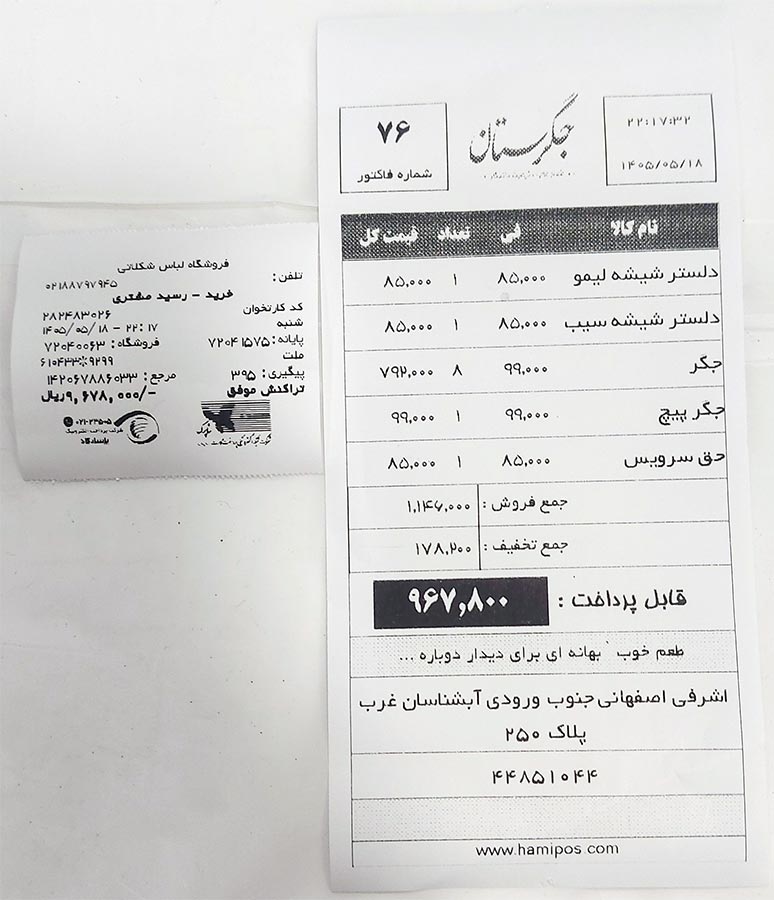 ۷۶
شماره فاکتور
جگرستان
۲۲:۱۷:۳۲
۱۴۰۵/۰۵/۱۸
نام کالا فی تعداد قیمت کل
دلستر شیشه لیمو ۸۵,۰۰۰ ۱ ۸۵,۰۰۰
دلستر شیشه سیب ۸۵,۰۰۰ ۱ ۸۵,۰۰۰
جگر ۹۹,۰۰۰ ۸ ۷۹۲,۰۰۰
جگر پیچ ۹۹,۰۰۰ ۱ ۹۹,۰۰۰
حق سرویس ۸۵,۰۰۰ ۱ ۸۵,۰۰۰
جمع فروش : ۱,۱۴۶,۰۰۰
جمع تخفیف : ۱۷۸,۲۰۰
قابل پرداخت : ۹۶۷,۸۰۰
طعم خوب ٬ بهانه ای برای دیدار دوباره ...
اشرفی اصفهانی جنوب ورودی آبشناسان غرب
پلاک ۲۵۰
۴۴۸۵۱۰۴۴
www.hamipos.com
فروشگاه لباس شکلاتی
تلفن: ۰۲۱۸۸۷۹۷۹۴۵
خرید - رسید مشتری
کد کارتخوان ۲۸۲۴۸۳۰۲۶
شنبه ۱۴۰۵/۰۵/۱۸ - ۲۲:۱۷
پایانه: ۷۲۰۴۱۵۷۵ فروشگاه: ۷۲۰۴۰۰۶۳
ملت ۶۱۰۴۳۳*۹۲۹۹
پیگیری: ۳۹۵ مرجع: ۱۴۲۰۶۷۸۸۶۰۳۳
تراکنش موفق ۹,۶۷۸,۰۰۰/-ریال
شاپرک
پاسارگاد